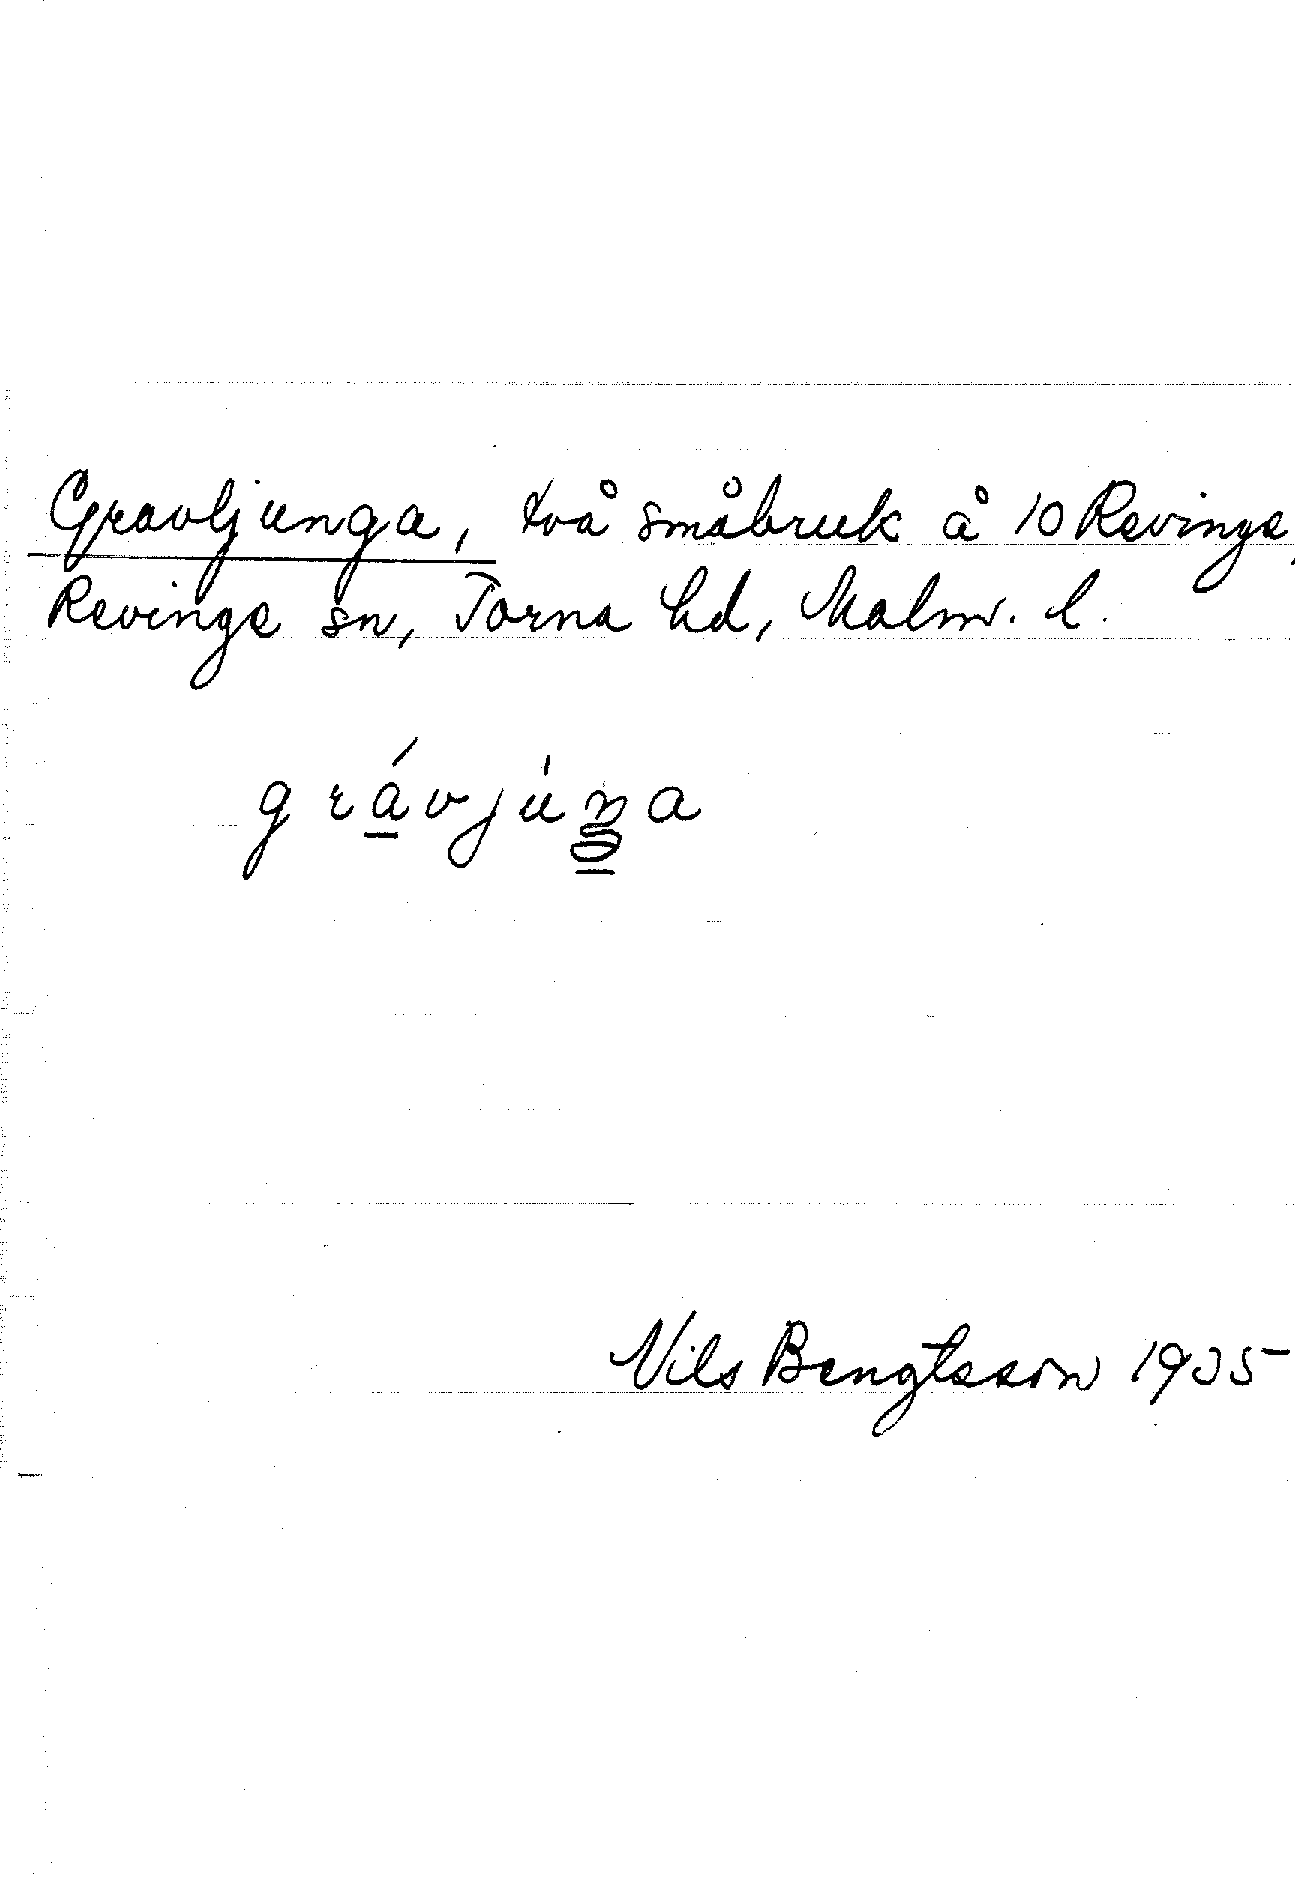 Gravljunga, två småbruk å 10 Revinge,
Revinge sn, Torna hd, Malm. l.
grávjúŋa
Nils Bengtsson 1935